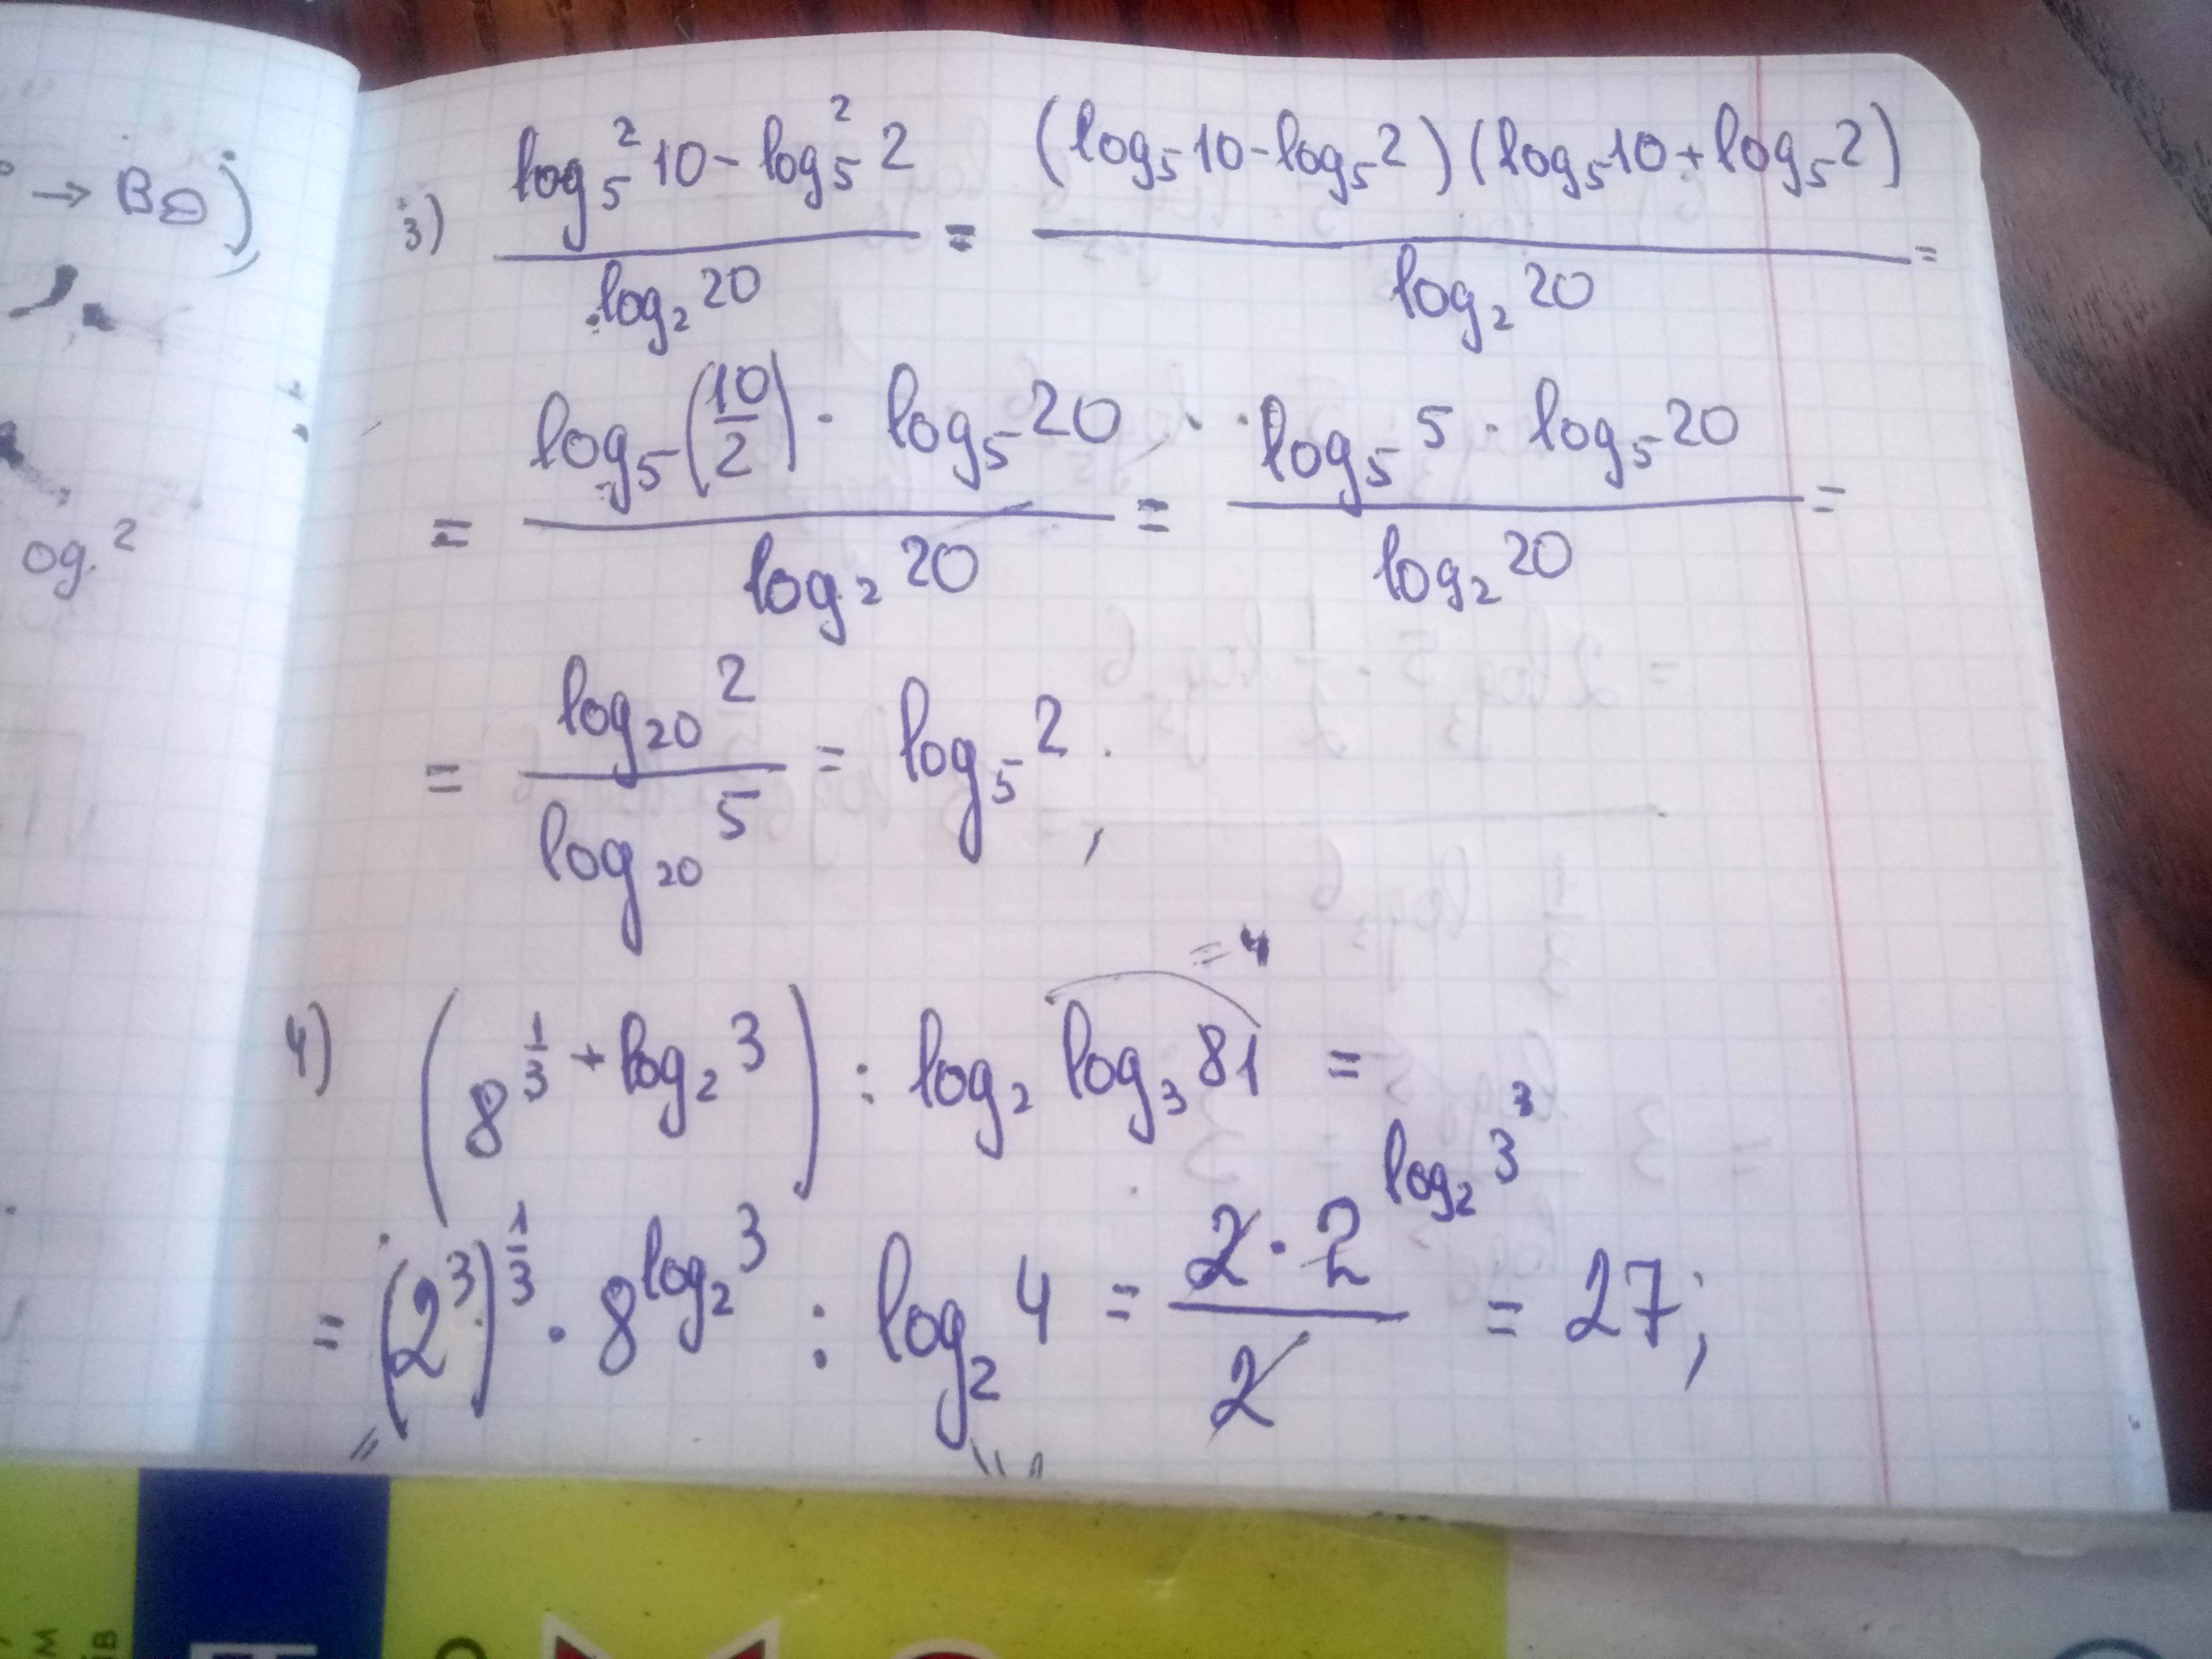 → B⊖)
og.²
3) (log₅²10 - log₅²2)/(log₂20) = ((log₅10 - log₅2)(log₅10 + log₅2))/(log₂20) =
= (log₅(10/2) · log₅20)/(log₂20) = (log₅5 · log₅20)/(log₂20) =
= (log₂₀2)/(log₂₀5) = log₅2,
= 4
4) (8^(1/3 + log₂3)) : log₂ log₃81 =
= (2³)^(1/3) · 8^(log₂3) : log₂4 = (2 · 2^(log₂3³))/2 = 27;